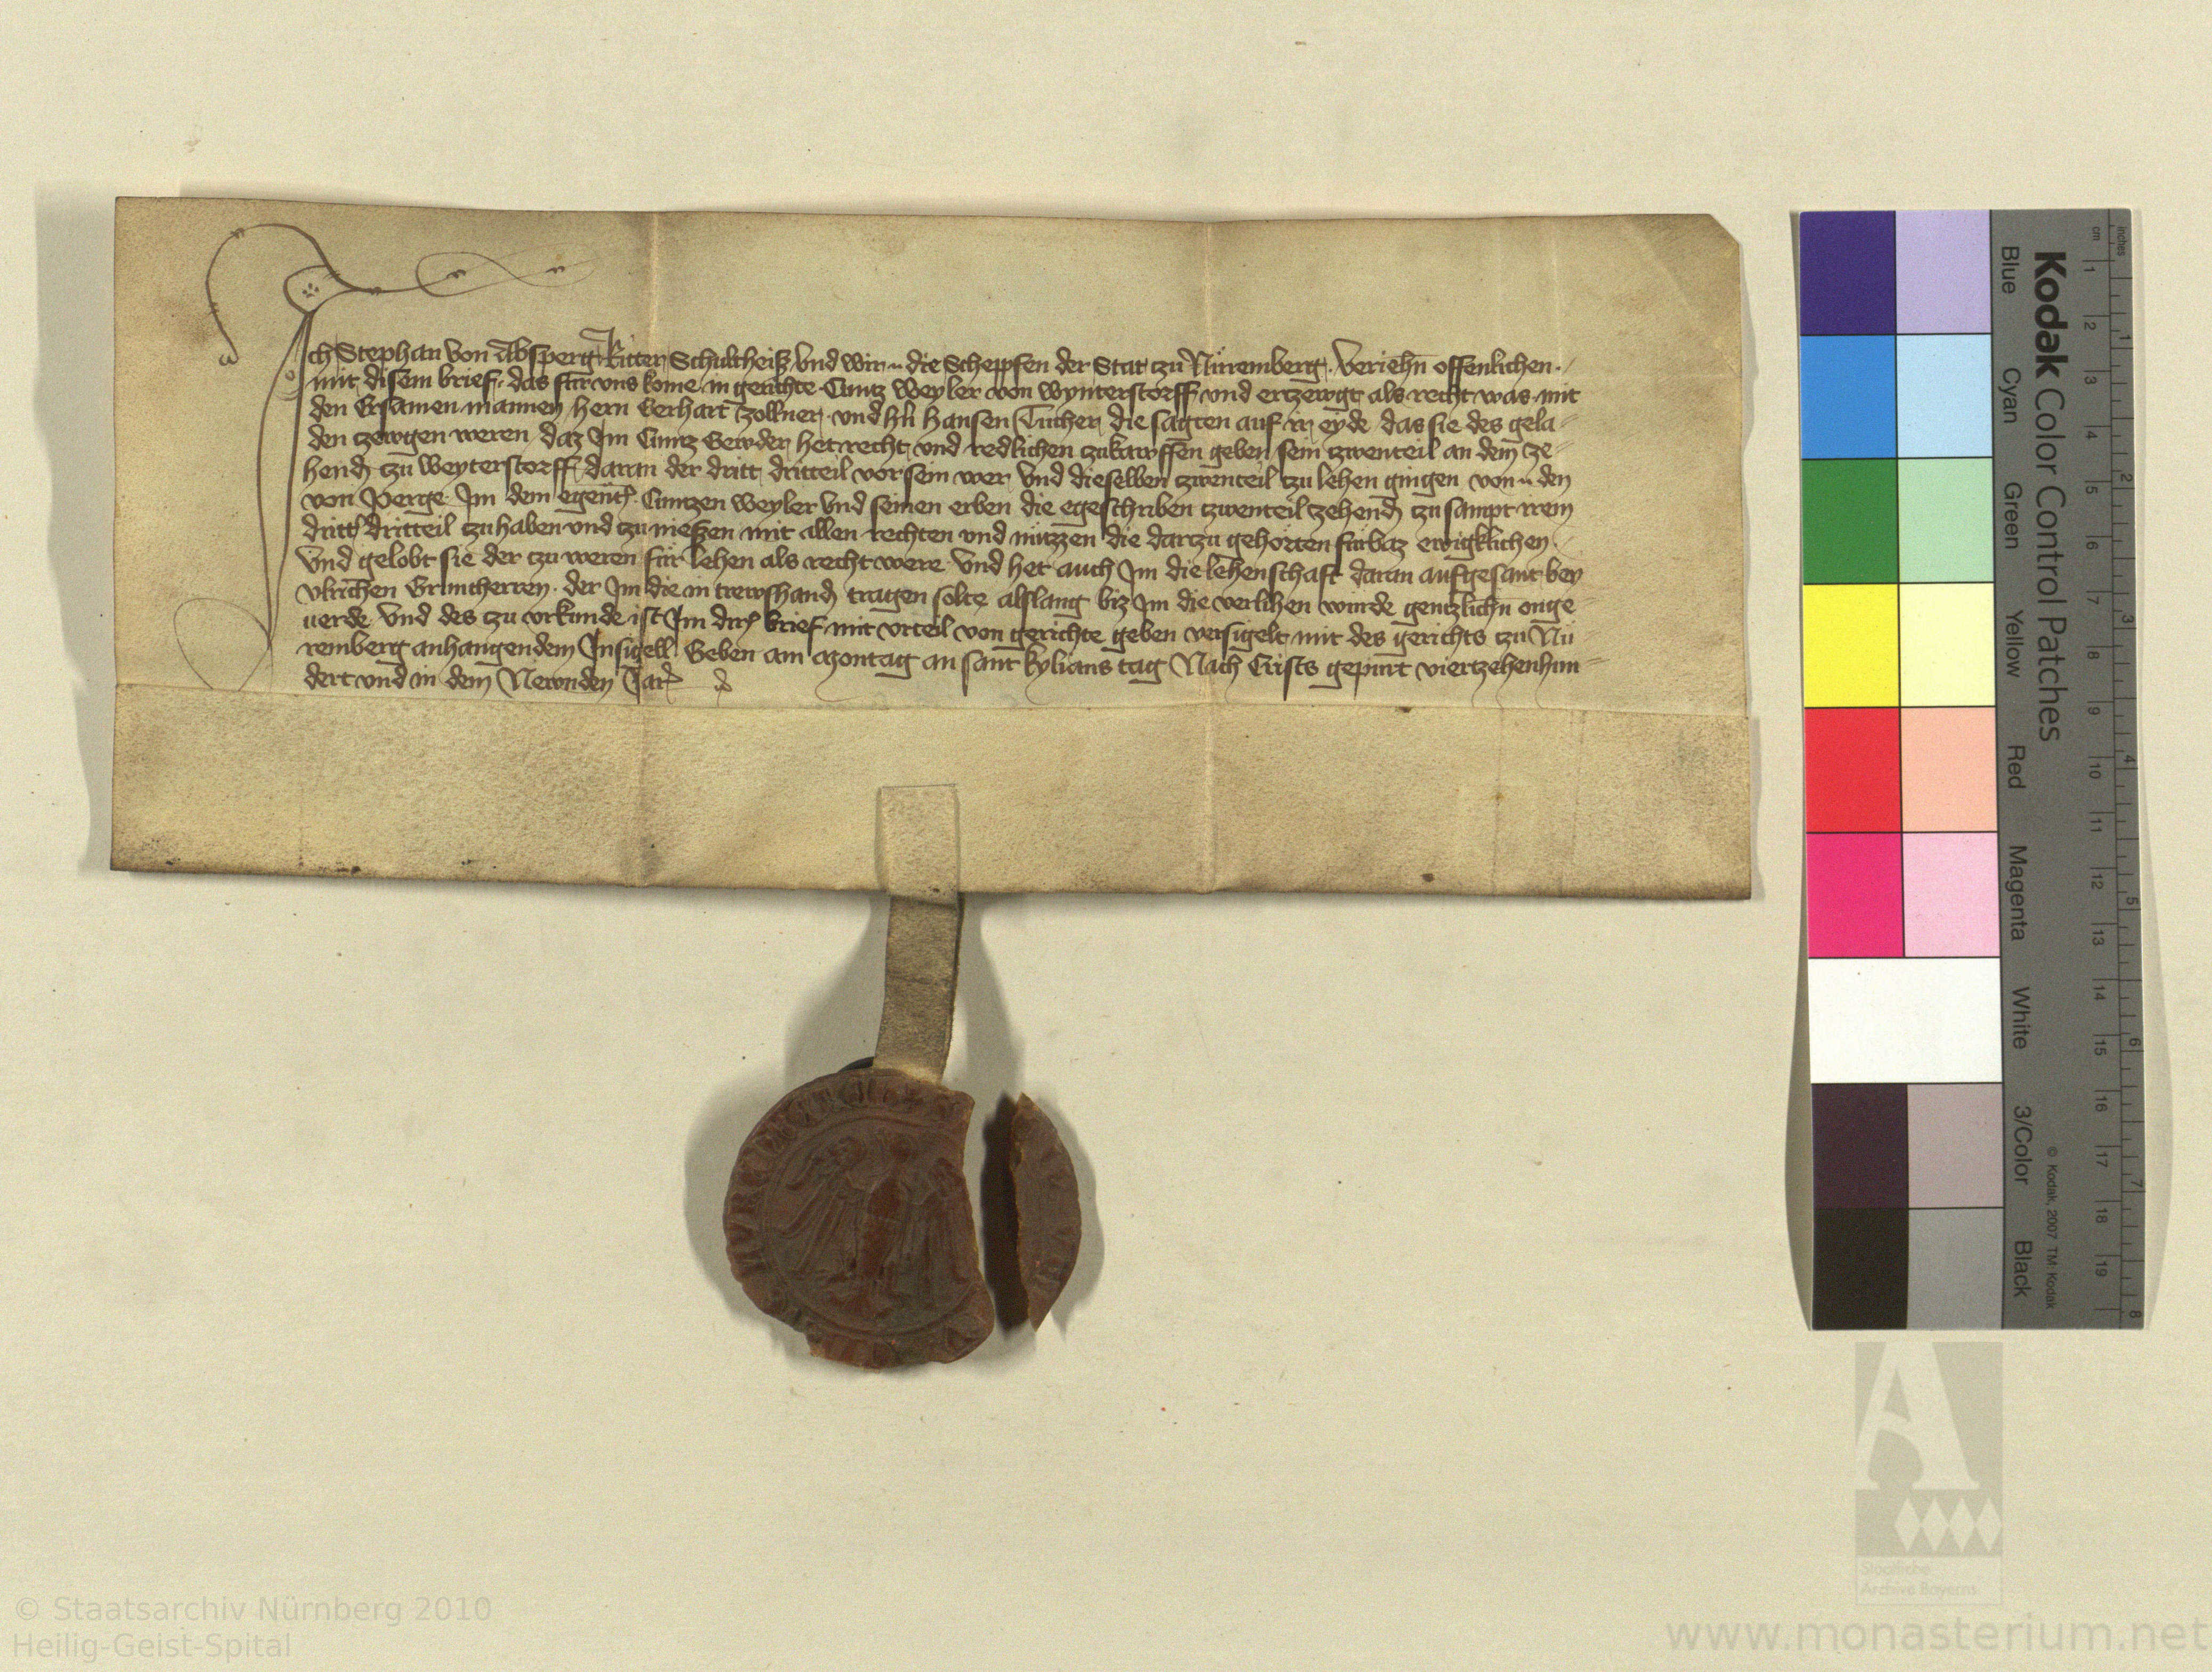 Ich Stephan von Absperg Ritter Schultheiß vnd wir die Scheppfen der Stat zu Nüremberg. Veriehn offenlichen.
mit disem brief. das für vns kome in gerichte Cuntz Weyler von Wynterstorff vnd ertzewgt als recht was mit
den Ersamen mannen hern Eerhart Zollner. vnd hn Hansen Tucher die sagten auf ir eyde das sie des gela-
den tzewgen weren daz Im Cuntz Gewder het recht vnd redlichen zukawffen geben sein zwenteil an dem Ze-
hend zu Weyterstorff daran der dritt dritteil vor sein wer Vnd dieselben zwenteil zu lehen gingen von den
von Perge Im dem egen Cuntzen Weyler Vnd seinen erben die egeschriben zwenteil zehend zu sampt irem
dritt dritteil zu haben vnd zu nießen mit allen rechten vnd nützzen die dartzu gehörten fürbaz ewigklichen
Vnd gelobt sie der zu weren für lehen als recht were Vnd het auch Im die lehenschaft daran aufgesant bey
Vlrichen Gruntherren. der Im die in trewshand tragen solte alslang biz Im die verlihen würde gentzlichn onge-
uerde Vnd des zu vrkunde ist Im dirr brief mit vrteil von gerichte geben versigelt mit des gerichts zu Nü-
remberg anhangendem Insigell Geben am Montag an sant kylians tag Nach Crists gepurt viertzehenhun-
dert vnd in dem Newnden Jar
Kodak Color Control Patches
Blue
Cyan
Green
Yellow
Red
Magenta
White
3/Color
Black
© Kodak, 2007 TM: Kodak
cm
1
2
3
4
5
6
7
8
9
10
11
12
13
14
15
16
17
18
19
inches
1
2
3
4
5
6
7
8
Staatliche
Archive Bayerns
© Staatsarchiv Nürnberg 2010
Heilig-Geist-Spital
www.monasterium.net